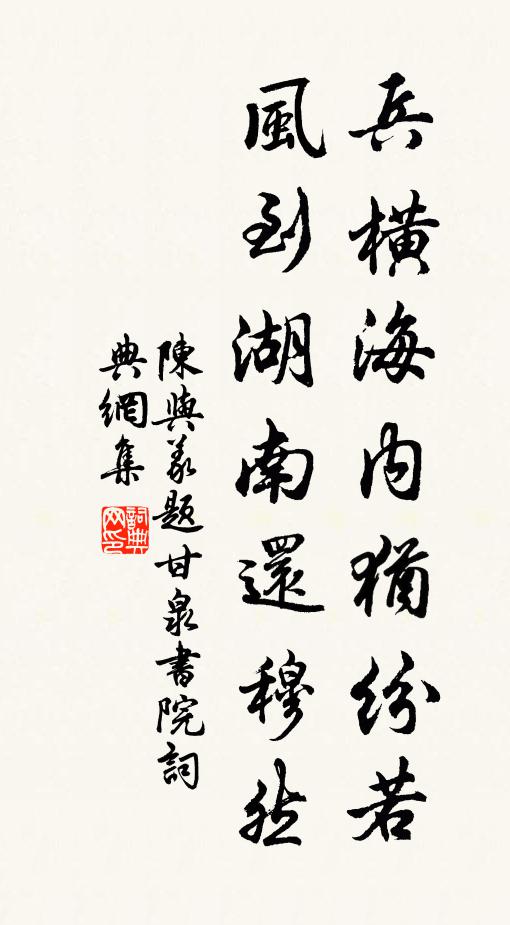 兵橫海內猶紛若
風到湖南還穆然
陳與義題甘泉書院詞
典網集
詞典網印